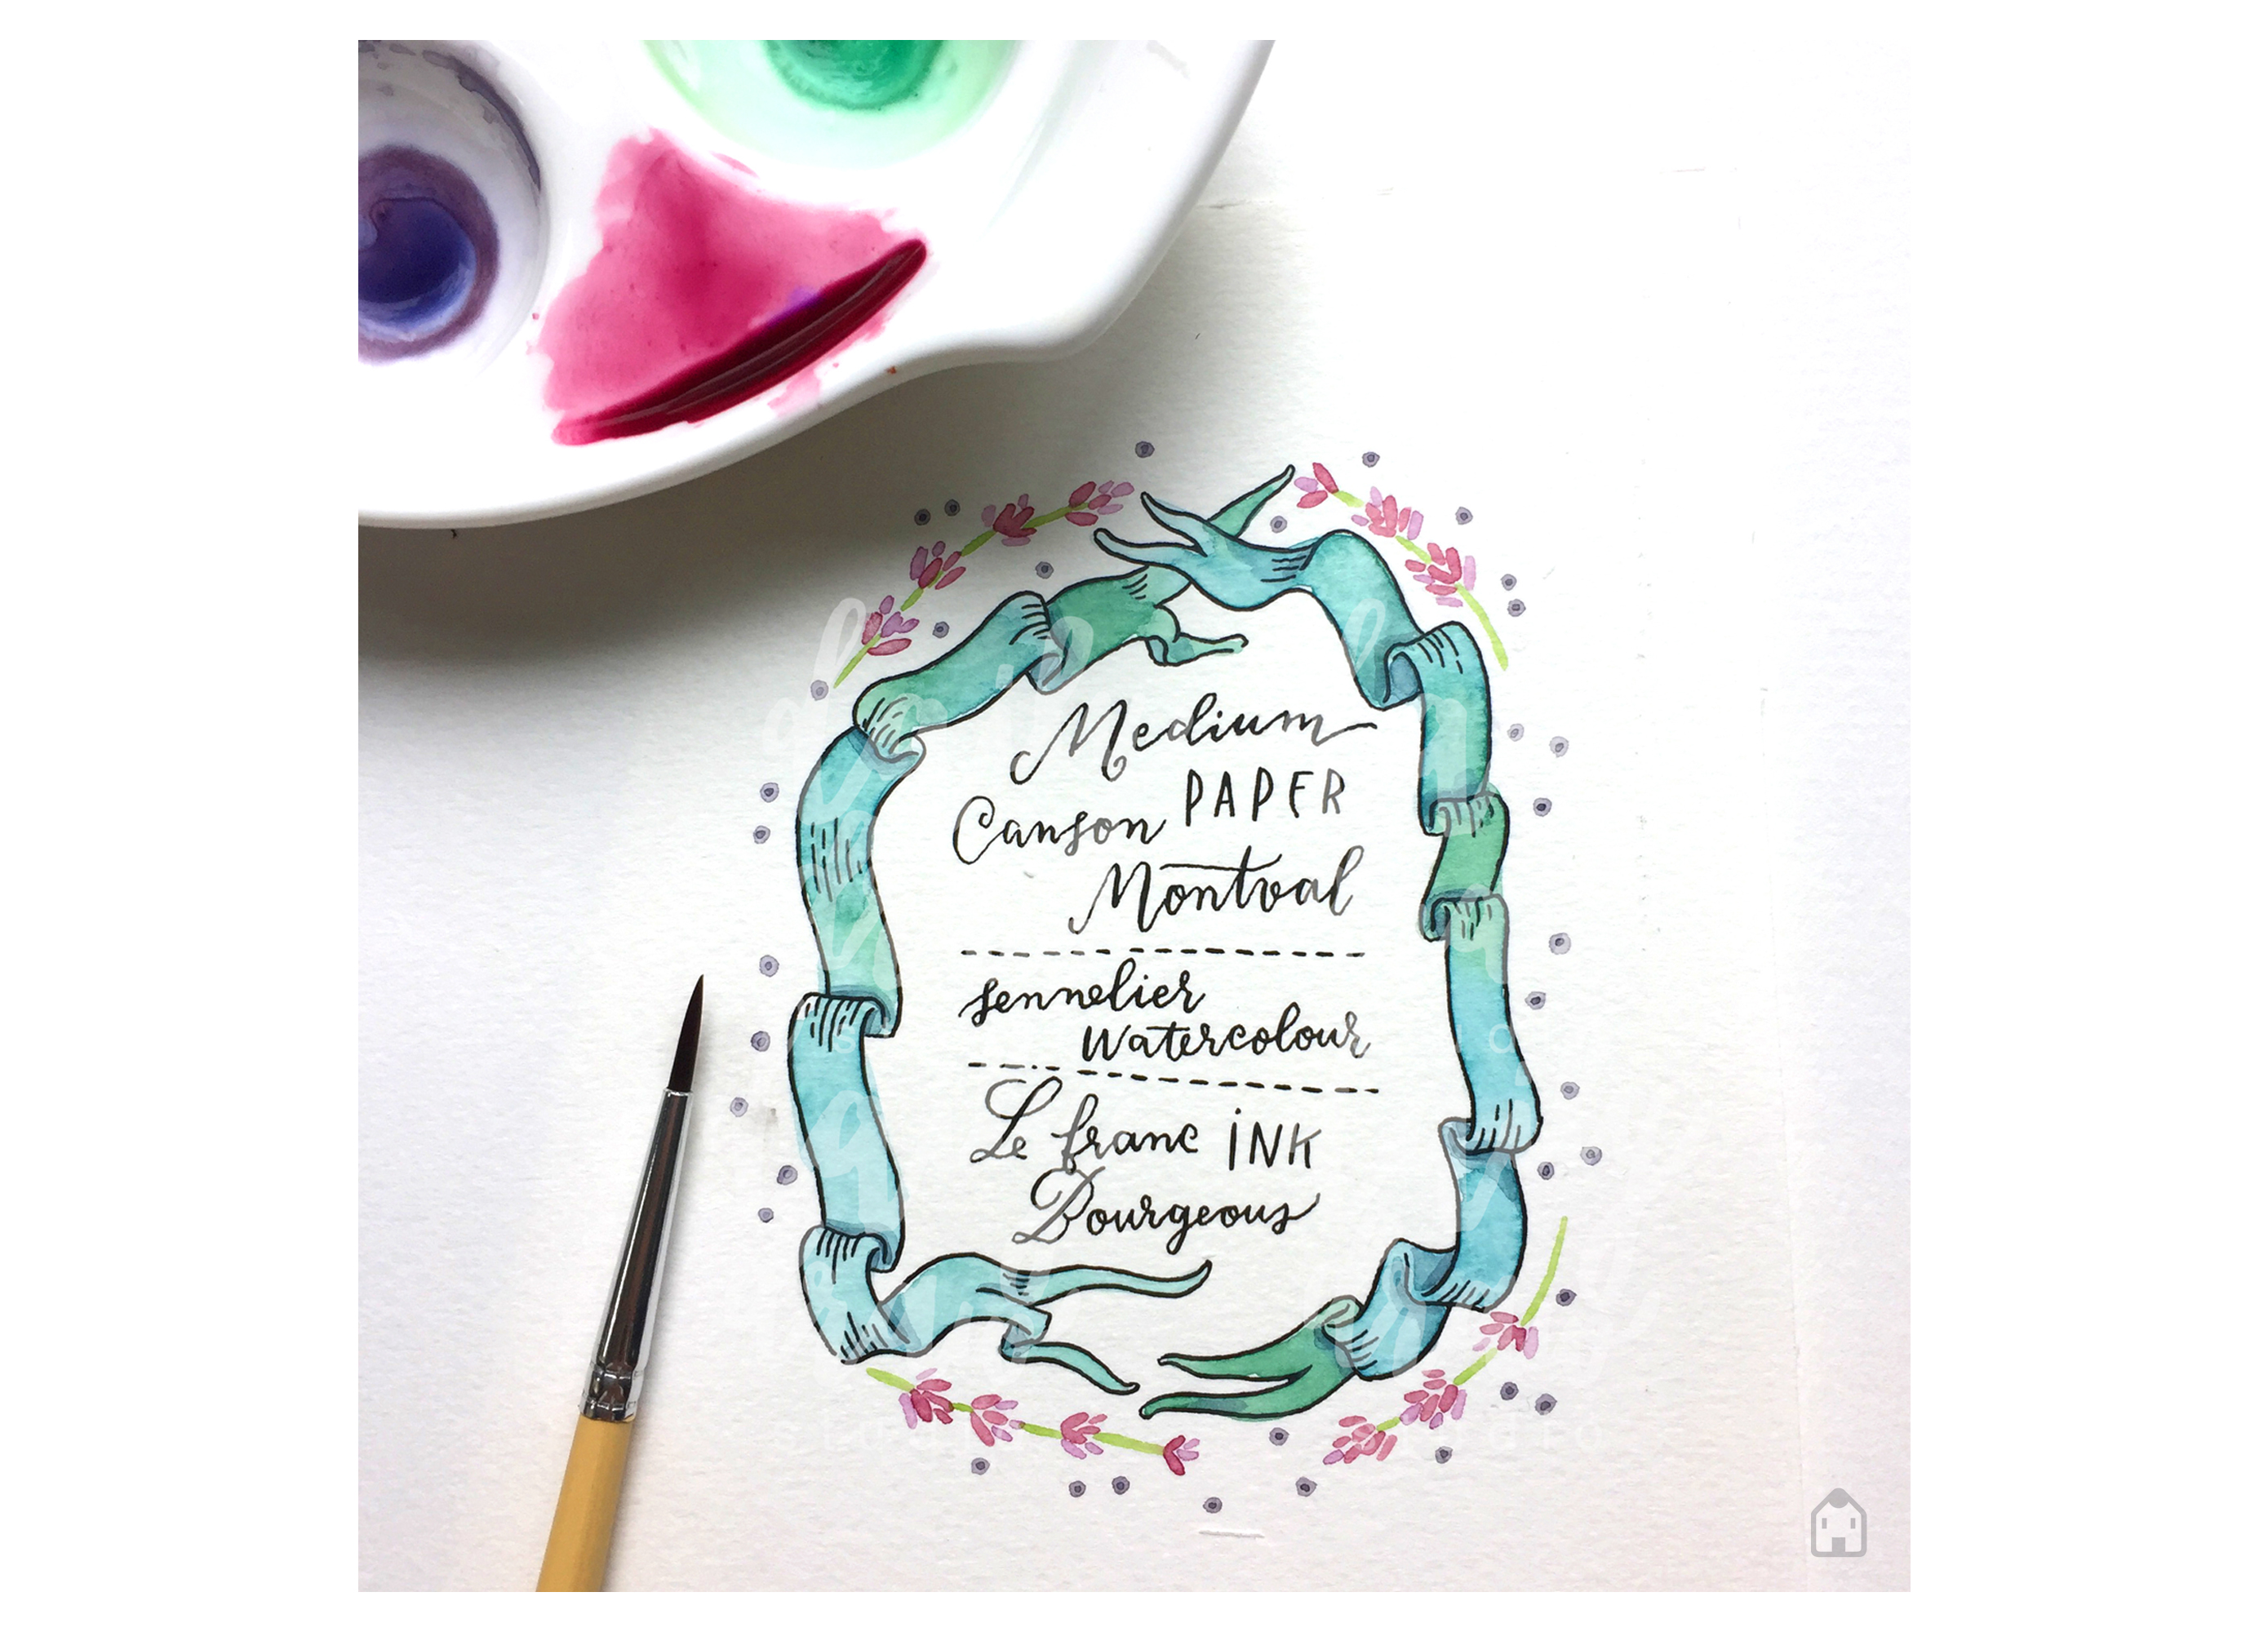 Medium
Canson PAPER
Montval
sennelier
watercolour
Le franc INK
Bourgeous